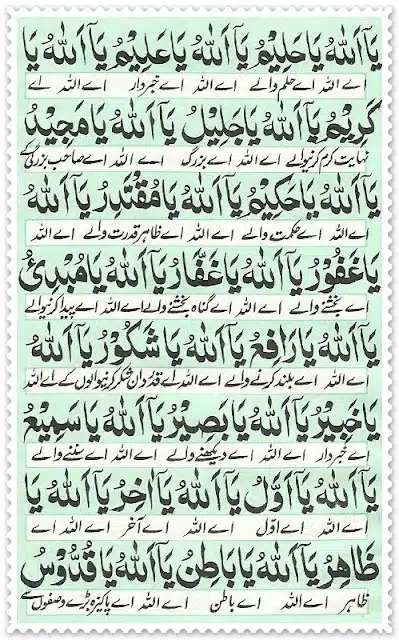 يَآ اَللهُ يَا حَلِيْمُ يَآ اَللهُ يَا عَلِيْمُ يَآ اَللهُ يَا
اے اللہ اے حلم والے اے اللہ اے خبردار اے اللہ اے
كَرِيْمُ يَآ اَللهُ يَا جَلِيْلُ يَآ اَللهُ يَا مَجِيْدُ
نہایت کرم کرنیوالے اے اللہ اے بزرگ اے اللہ اے صاحب بزرگی کے
يَآ اَللهُ يَا حَكِيْمُ يَآ اَللهُ يَا مُقْتَدِرُ يَآ اَللهُ
اے اللہ اے حکمت والے اے اللہ اے ظاہر قدرت والے اے اللہ
يَا غَفُوْرُ يَآ اَللهُ يَا غَفَّارُ يَآ اَللهُ يَا مُبْدِئُ
اے بخشنے والے اے اللہ اے گناہ بخشنے والے اے اللہ اے پیدا کرنیوالے
يَآ اَللهُ يَا رَافِعُ يَآ اَللهُ يَا شَكُوْرُ يَآ اَللهُ
اے اللہ اے بلند کرنے والے اے اللہ اے قدردان شکر کرنیوالوں کے اے اللہ
يَا خَبِيْرُ يَآ اَللهُ يَا بَصِيْرُ يَآ اَللهُ يَا سَمِيْعُ
اے خبردار اے اللہ اے دیکھنے والے اے اللہ اے سننے والے
يَآ اَللهُ يَا اَوَّلُ يَآ اَللهُ يَا اٰخِرُ يَآ اَللهُ يَا
اے اللہ اے اوّل اے اللہ اے آخر اے اللہ اے
ظَاهِرُ يَآ اَللهُ يَا بَاطِنُ يَآ اَللهُ يَا قُدُّوْسُ
ظاہر اے اللہ اے باطن اے اللہ اے پاکیزہ بڑے وصفوں سے